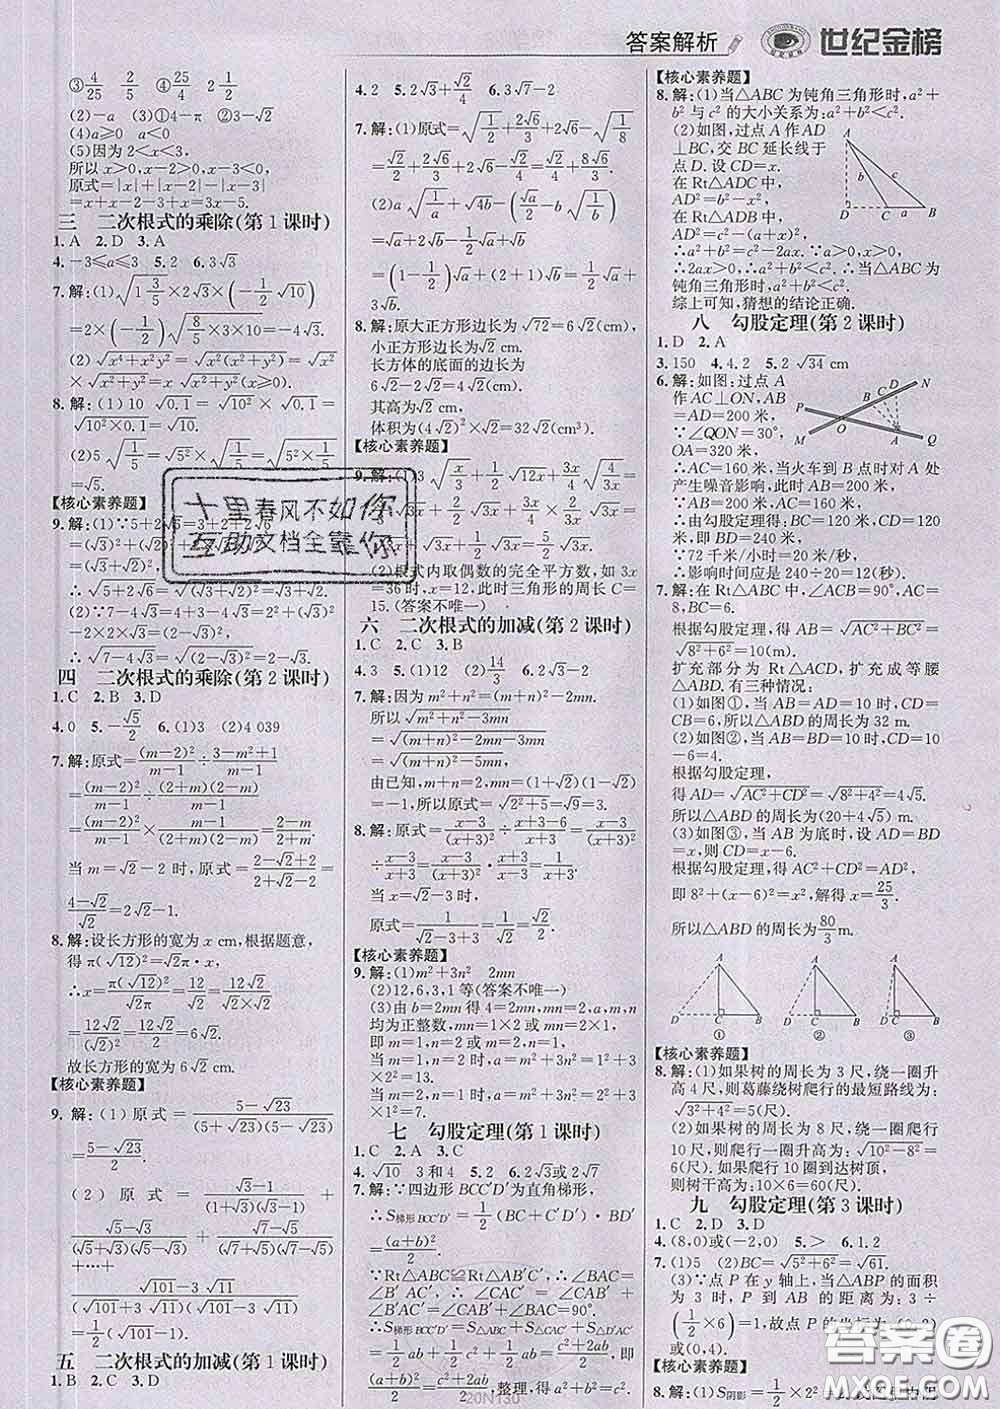 答案解析
世纪金榜
③4/25 2/5 ④25/4 5/2
(2)-a (3)①3 ②4-π ③-6
(4)a≥0 a<0
(5)因为2<x<3,
所以x>0,x-2>0,x-3<0,
原式=|x|+|x-2|-|x-3|
=x+x-2+x-3=3x-5.
三 二次根式的乘除(第1课时)
1.A 2.D 3.A
4.-3≤a≤3 5.2 6.3√3
7.解:(1)√(1 3/5)×2√3×(-1/2 √10)
=2×(-1/2)√(8/5×3×10)=-4√3.
(2)√(x⁴+x²y²)=√(x²(x²+y²))=√x²
×√(x²+y²)=x√(x²+y²)(x≥0).
8.解:(1)10 √0.1=√10²×√0.1=
√(10²×0.1)=√10.
(2)5√(1/5)=√5²×√(1/5)=√(5²×1/5)
=√5.
【核心素养题】
9.解:(1)∵5+2√6=3+2+2√6
=(√3)²+(√2)²+2×√3×√2
=(√3+√2)²,
∴√(5+2√6)=√((√3+√2)²)=√3+√2.
(2)∵7-4√3=4+3-4√3=2²+(√3)²
-2×2×√3=(2-√3)²,
∴√(7-4√3)=√((2-√3)²)=2-√3.
四 二次根式的乘除(第2课时)
1.C 2.B 3.D
4.0 5.-√5/2 6.(1)3 (2)4 039
7.解:原式=(m-2)²/(m-1)÷(3-m²+1)/(m-1)
=(m-2)²/(m-1)÷(2+m)(2-m)/(m-1)
=(m-2)²/(m-1)×(m-1)/((2+m)(2-m))=(2-m)/(2+m)
当m=√2-2时,原式=(2-√2+2)/(2+√2-2)=
(4-√2)/√2=2√2-1.
8.解:设长方形的宽为x cm,根据题意,
得π(√12)²=√2π·x,
∴x=π(√12)²/(√2π)=(√12)²/√2=12√2/(√2)²
=12√2/√(2²)=12√2/2=6√2.
故长方形的宽为6√2 cm.
【核心素养题】
9.解:(1)原式=(5-√23)/((5+√23)(5-√23))
=(5-√23)/2.
(2)原式=(√3-1)/((1+√3)(√3-1))+
(√5-√3)/((√5+√3)(√5-√3))+(√7-√5)/((√7+√5)(√7-√5))
+…+
(√101-3√11)/((√101+3√11)(√101-3√11))
=1/2(√101-1).
五 二次根式的加减(第1课时)
1.B 2.C 3.D
4.2 5.2√3+√2/4 6.3√7-2
7.解:(1)原式=√(1/2)+2√6/3+2√6-√(1/8)
=√2/2+2√6/3+2√6-√2/4=√2/4+8√6/3.
(2)a√(1/a)+√4b-(√a/2-b√(1/b))
=√a+2√b-√a/2+√b
=(1-1/2)√a+(2+1)√b
=√a/2+3√b.
8.解:原大正方形边长为√72=6√2(cm),
小正方形边长为√2 cm.
长方体的底面的边长为
6√2-2√2=4√2(cm),
其高为√2 cm,
体积为(4√2)²×√2=32√2(cm³).
【核心素养题】
(2)根式内取偶数的完全平方数,如3x
=36时,x=12,此时三角形的周长C=
15.(答案不唯一)
六 二次根式的加减(第2课时)
1.C 2.C 3.B
4.3 5.(1)12 (2)14/3 6.2
7.解:因为m²+n²=(m+n)²-2mn.
所以√(m²+n²-3mn)
=√((m+n)²-2mn-3mn)
=√((m+n)²-5mn),
由已知,m+n=2,mn=(1+√2)(1-√2)
=-1,所以原式=√(2²+5)=√9=3.
8.解:原式=(x-3)/(x+3)²÷(x-3+6)/(x+3)=(x-3)/(x+3)²
÷(x-3)/(x+3)=(x-3)/(x+3)²·(x+3)/(x-3)=1/(x+3).
当x=√2-3时,
原式=1/(√2-3+3)=1/√2=√2/2.
【核心素养题】
9.解:(1)m²+3n² 2mn
(2)12,6,3,1等(答案不唯一)
(3)由b=2mn得4=2mn,a,m,n
均为正整数,mn=1×2或mn=2×1,
即m=1,n=2或m=2,n=1,
当m=1,n=2时,a=m²+3n²=1²+
3×2²=13.
当m=2,n=1时,a=m²+3n²=2²+
3×1²=7.
七 勾股定理(第1课时)
1.C 2.A 3.C
4.√10 3和4 5.2 6.2√3或2√7
7.解:∵四边形BCC′D′为直角梯形,
∴S梯形BCC′D′=1/2(BC+C′D′)·BD′
=(a+b)²/2.
∵Rt△ABC≌Rt△AB′C′,∴∠BAC=
∠B′AC′.∴∠CAC′=∠CAB′+
∠B′AC′=∠CAB′+∠BAC=90°.
∴S梯形BCC′D′=S△ABC+S△CAC′+S△D′AC′
=1/2ab+1/2c²+1/2ab=(c²+2ab)/2,即
(a+b)²/2=(c²+2ab)/2,整理,得a²+b²=c².
【核心素养题】
8.解:(1)当△ABC为钝角三角形时,a²+
b²与c²的大小关系为:a²+b²<c².
(2)如图,过点A作AD
⊥BC,交BC延长线于
点D.设CD=x.
在Rt△ADC中,
AD²=b²-x²,
在Rt△ADB中,
AD²=c²-(a+x)²,
∴a²+b²=c²-2ax.∵a>0,x>0,
∴2ax>0,∴a²+b²<c².∴当△ABC为
钝角三角形时,a²+b²<c².
综上可知,猜想的结论正确.
A
b c
D C a B
八 勾股定理(第2课时)
1.D 2.A
3.150 4.4.2 5.2√34 cm
6.解:如图:过点A
作AC⊥ON,AB
=AD=200米,
∵∠QON=30°,
OA=320米,
∴AC=160米,当火车到B点时对A处
产生噪音影响,此时AB=200米,
∵AB=200米,AC=160米,
∴由勾股定理得:BC=120米,CD=120
米,即BD=240米,
∵72千米/小时=20米/秒,
∴影响时间应是240÷20=12(秒).
P M B C D N O A Q
7.解:在Rt△ABC中,∠ACB=90°,AC=
8,BC=6.
根据勾股定理,得AB=√(AC²+BC²)=
√(8²+6²)=10(m).
扩充部分为Rt△ACD,扩充成等腰
△ABD.有三种情况:
(1)如图①,当AB=AD=10时,CD=
CB=6,所以△ABD的周长为32 m.
(2)如图②,当AB=BD=10时,CD=10
-6=4.
根据勾股定理,
得AD=√(AC²+CD²)=√(8²+4²)=4√5.
所以△ABD的周长为(20+4√5) m.
(3)如图③,当AB为底时,设AD=BD
=x,则CD=x-6.
根据勾股定理,得AC²+CD²=AD²,
即8²+(x-6)²=x².解得x=25/3.
所以△ABD的周长为80/3 m.
A D C B ①
A D C B ②
A D C B ③
【核心素养题】
8.解:(1)如果树的周长为3尺,绕一圈升
高4尺,则葛藤绕树爬行的最短路线为:
√(3²+4²)=5(尺).
(2)如果树的周长为8尺,绕一圈爬行10
尺,则爬行一圈升高√(10²-8²)=
6(尺).如果爬行10圈到达树顶,
则树干高为:10×6=60(尺).
九 勾股定理(第3课时)
1.C 2.D 3.D
4.(8,0)或(-2,0) 5.> 6.1.2
7.(1)5 (2)BC=√(5²+6²)=√61.
(3)∵点P在y轴上,当△ABP的面积
为3时,∴P到AB的距离为:3÷
(1/2×6)=1,故点P的坐标为(0,2)
或(0,4).
【核心素养题】
十里春风不如你
互助文档全靠你
答案圈
MXQE.COM